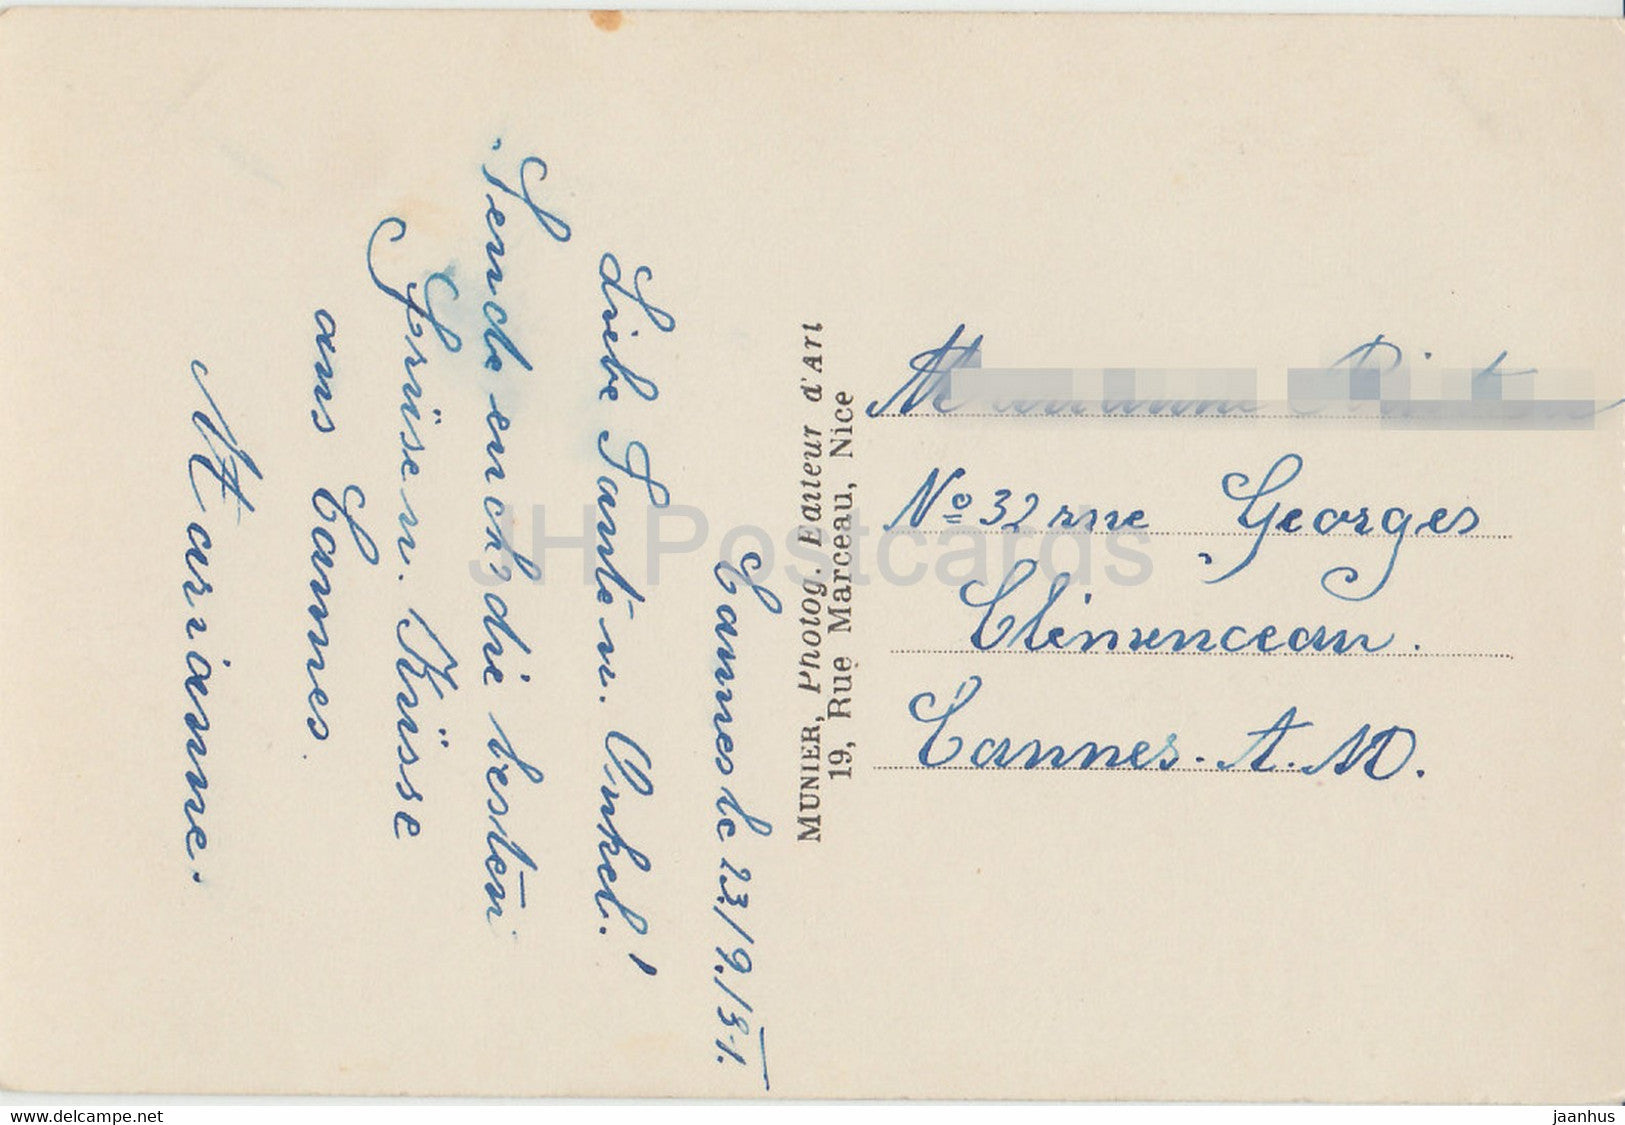 Cannes le 23./9./31.
Liebe Tante u. Onkel!
Sende euch die besten
Grüsse u. Küsse
aus Cannes.
Marianne.
MUNIER, Photog. Editeur d'Art
19, Rue Marceau, Nice
Nº 32 rue Georges
Clémenceau.
Cannes. A. M.
JH Postcards
www.delcampe.net
jaanhus